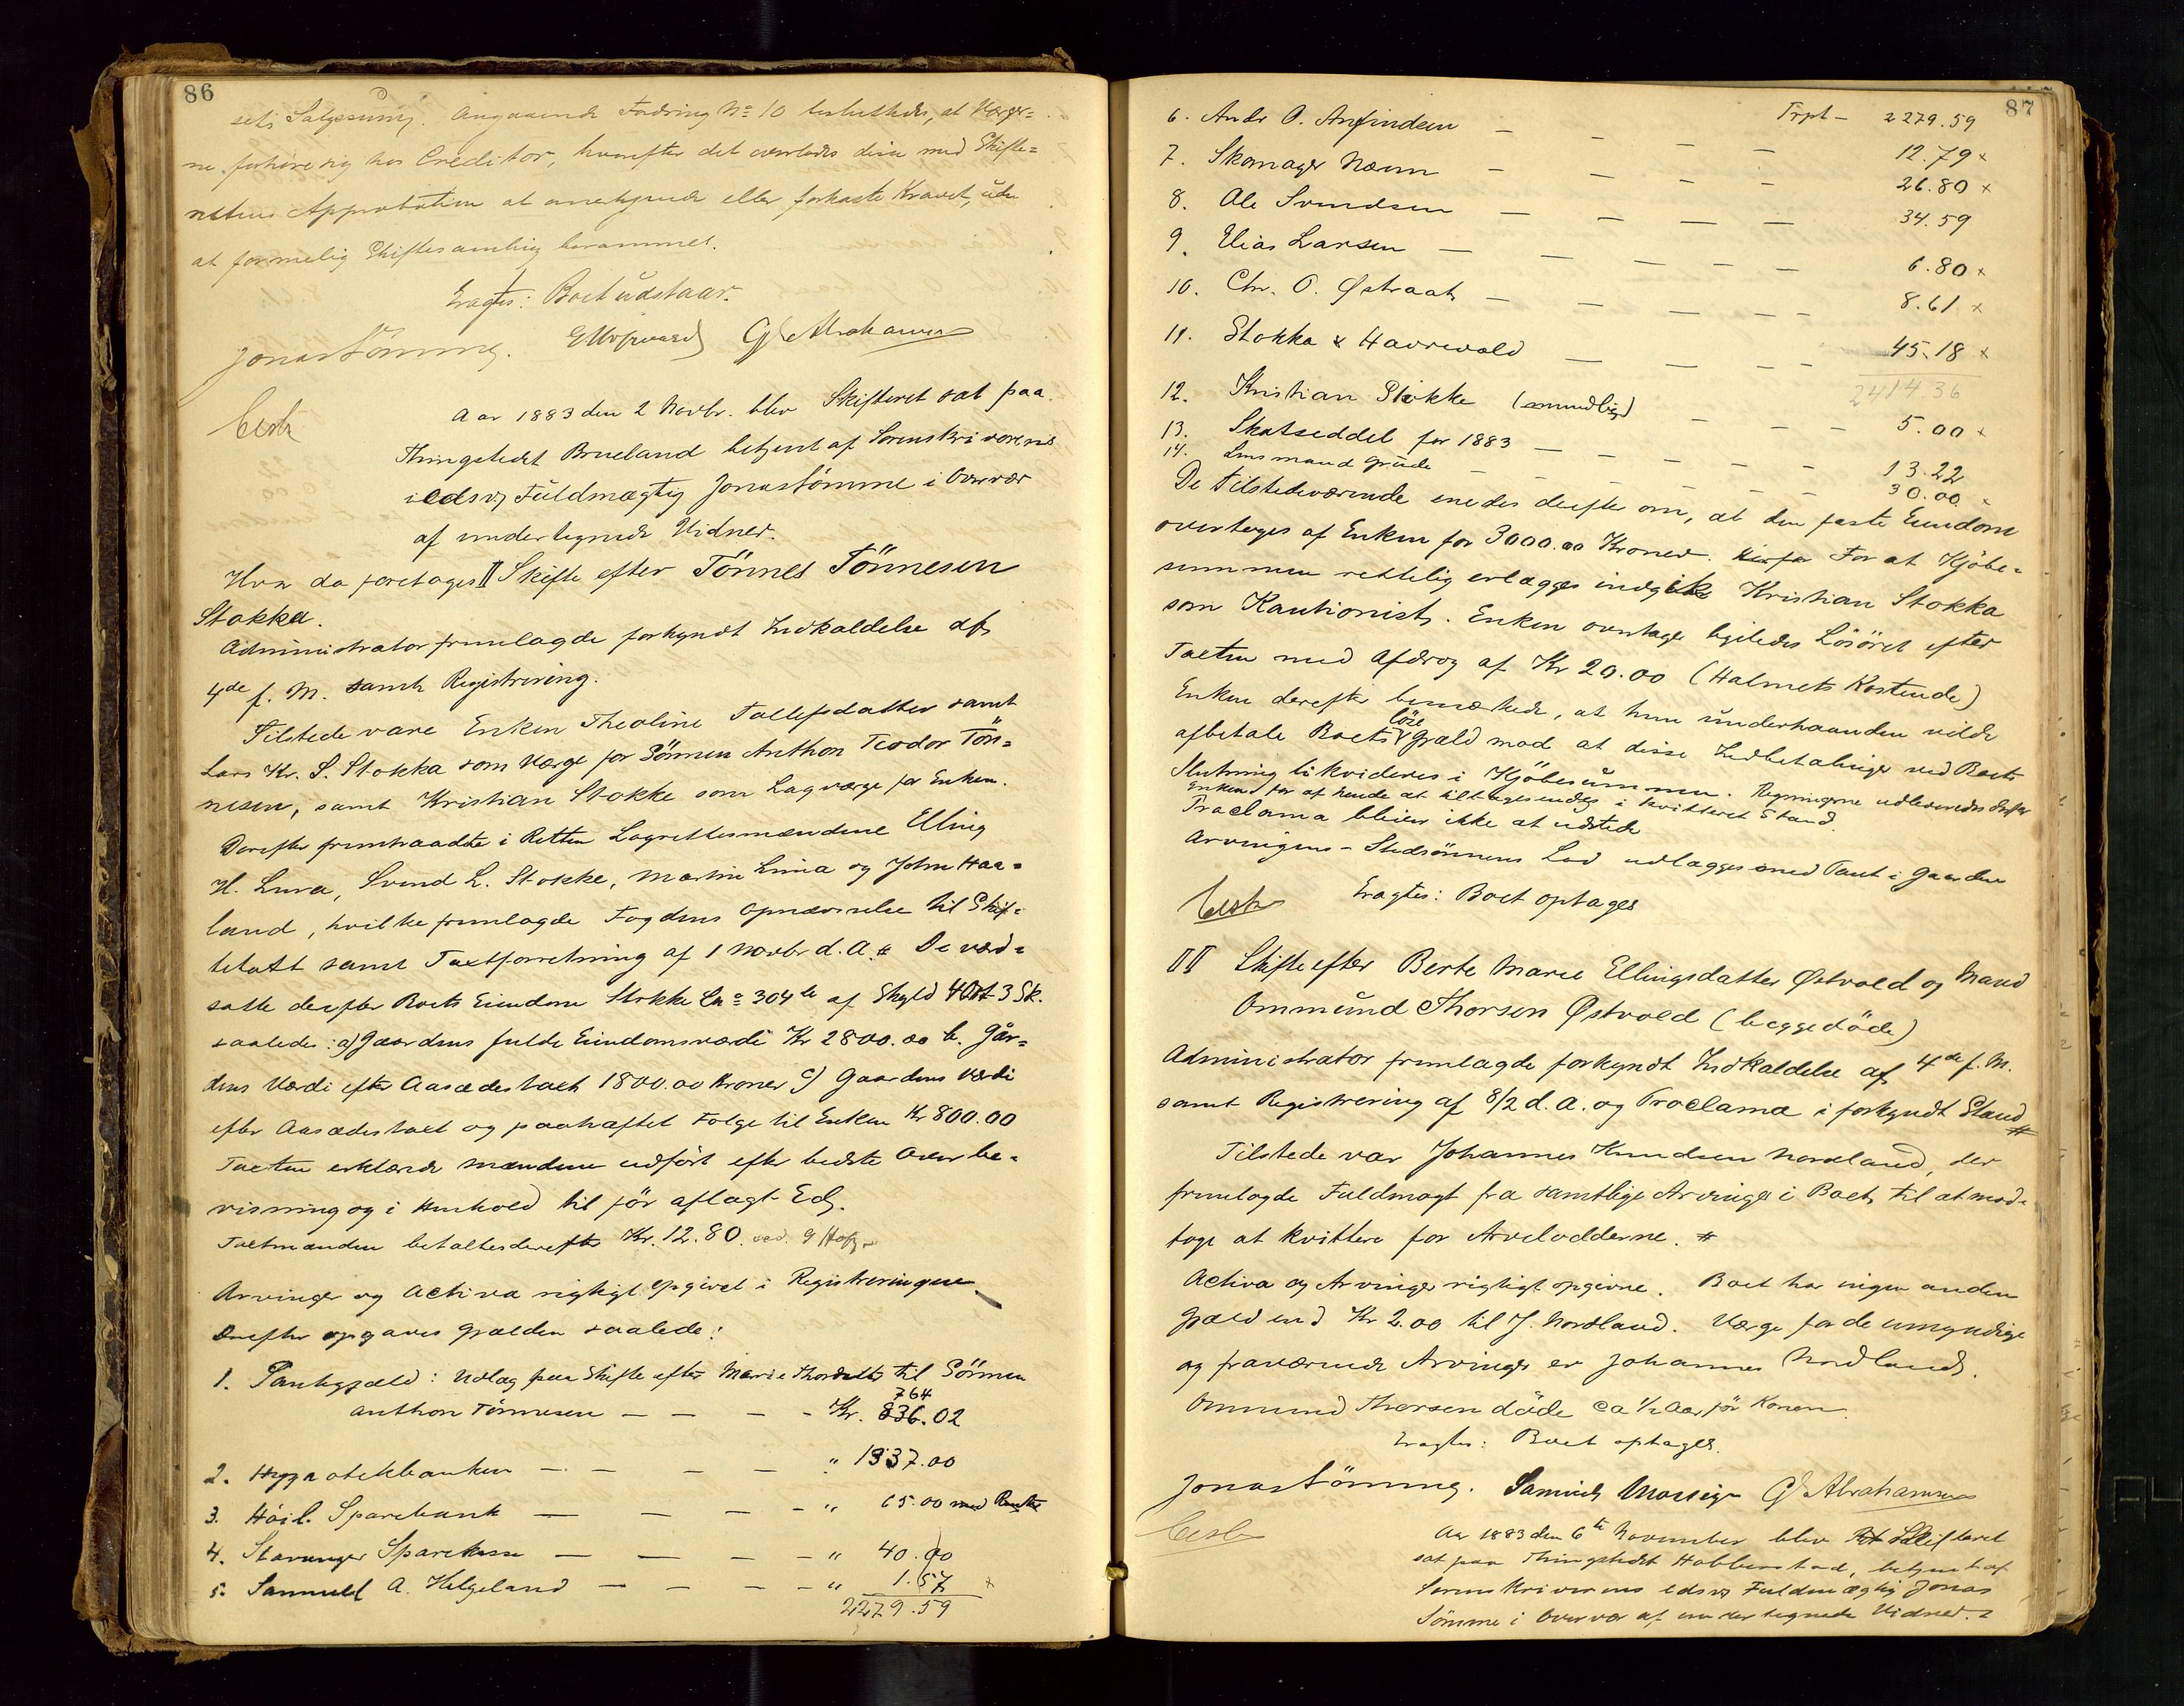 86
sets Salgssum. Angaaende Fodring No 10 besluttedes, at Værger=
ne forhöre sig hos Creditor, hvorefter det overlodes disse med Skifte=
rettens Approbation at anerkjende eller forkaste Kravet, uden
at formelig Skiftesamling berammes.
Eragtes: Boet udstaar.
Jonas Sömme. G Abrahamsen
Aar 1883 den 2 Novbr. blev Skifteret sat paa
Thingstedet Brueland betjent af Sorenskriverens
edsv. Fuldmægtig Jonas Sömme i Overvær
af undertegnede Vidner.
Hvor da foretoges II Skifte efter Tönnes Tönnesen
Stokka.
Administrator fremlagde forkyndt Indkaldelse af
4de f. M. samt Registrering.
Tilstede vare Enken Theoline Tollefsdatter samt
Lars Kr. S. Stokka som Værge for Sönnen Anthon Teodor Tön=
nesen, samt Kristian Stokke som Lagværge for Enken.
Derefter fremtraadte i Retten Lagrettesmændene Elling
H. Lura, Svend L. Stokke, Martin Lima og John Haa=
land, hvilke fremlagde Fogdens Opnævnelse til Skif=
tetaxt samt Taxtforretning af 1 Novbr d. A. # De værd=
satte derefter Boets Eiendom Stokke Ln= 304 b af Skyld 4 Ort 3 Sk.
saaledes: a) Gaardens fulde Eiendomsværdi Kr 2800.00 b. Går=
dens Værdi efter Aasædestaxt 1800.00 Kroner c) Gaardens Værdi
efter Aasædestaxt og paahæftet Folge til Enken Kr 800.00
Taxten erklærede Mændene udfört efter bedste Overbe=
visning og i Henhold til för aflagt Ed.
Taxtmændene betaltes derefter Kr. 12.80
Arvinger og Activa rigtigt opgivet i Registreringen
Derefter opgaves Gjælden saalede:
1. Pantegjæld: Udlag paa Skifte efter Marie Thorsdatter til Sönnen
764
Anthon Tönnesen — — — - Kr. 836.02
2. Hypothekbanken — — — — " 1337.00
3. Höil. Sparebank — — — - " 65.00 med Rente
4. Stavanger Sparekasse — — — - " 40.00
5. Samuel A. Helgeland — — — - " 1.57 x
2279.59
87
Trpt — 2279.59
6. Andr O. Anfindsen — — — — 12.79 x
7. Skomager Næm — — — — 26.80 x
8. Ole Svendsen — — — — 34.59
9. Elias Larsen — — — — 6.80 x
10. Chr. O. Østraat — — — — 8.61 x
11. Stokka & Haavevald — — — — 45.18 x
2414.36
12. Kristian Stokke (mundlig) — — — 5.00 x
13. Skatseddel for 1883 — — — — 13.22
14. Lensmand Grude — — — — 30.00 x
De Tilstedeværende enedes derefter om, at den faste Eiendom
overtages af Enken for 3000.00 Kroner. For at Kjöbe=
summen rettelig erlægges indgik Kristian Stokka
som Kautionist. Enken overtager ligeledes Lösöret efter
Taxten med Afdrag af Kr 20.00 (Halmets Kostende)
Enken derefter bemærkede, at hun underhaanden vilde
löse
afbetale Boets Gjæld mod at disse Indbetalinger ved Boets
Slutning likvideres i Kjöbesummen. Regningerne udleveredes derfor
Enken for af hende at tilbagesendes i kvitteret Stand.
Proclama bliver ikke at udstede
Arvingens - Stedsönnens Lod udlægges med Pant i Gaarden
Eragtes: Boet optages
III Skifte efter Berte Marie Ellingsdatter Østvold og Mand
Ommund Thorsen Østvold (begge döde)
Administrator fremlagde forkyndt Indkaldelse af 4de f. M.
samt Registrering af 8/2 d. A. og Proclama i forkyndt Stand #
Tilstede var Johannes Knudsen Nordland, der
fremlagde Fuldmagt fra samtlige Arvinger i Boet til at mod=
tage at kvittere for Arvelodderne. #
Activa og Arvinger rigtigt opgivne. Boet har ingen anden
Gjæld end Kr 2.00 til J. Nordland. Værge for de umyndige
og fraværende Arvinger er Johannes Nordland.
Ommund Thorsen döde ca 1/2 Aar för Konen.
Eragtes: Boet optages.
Jonas Sömme. G Abrahamsen
Aar 1883 den 6te November blev Skifteret
sat paa Thingstedet Hobberstad, betjent af
Sorenskriverens edsv. Fuldmægtig Jonas
Sömme i Overvær af undertegnede Vidner.